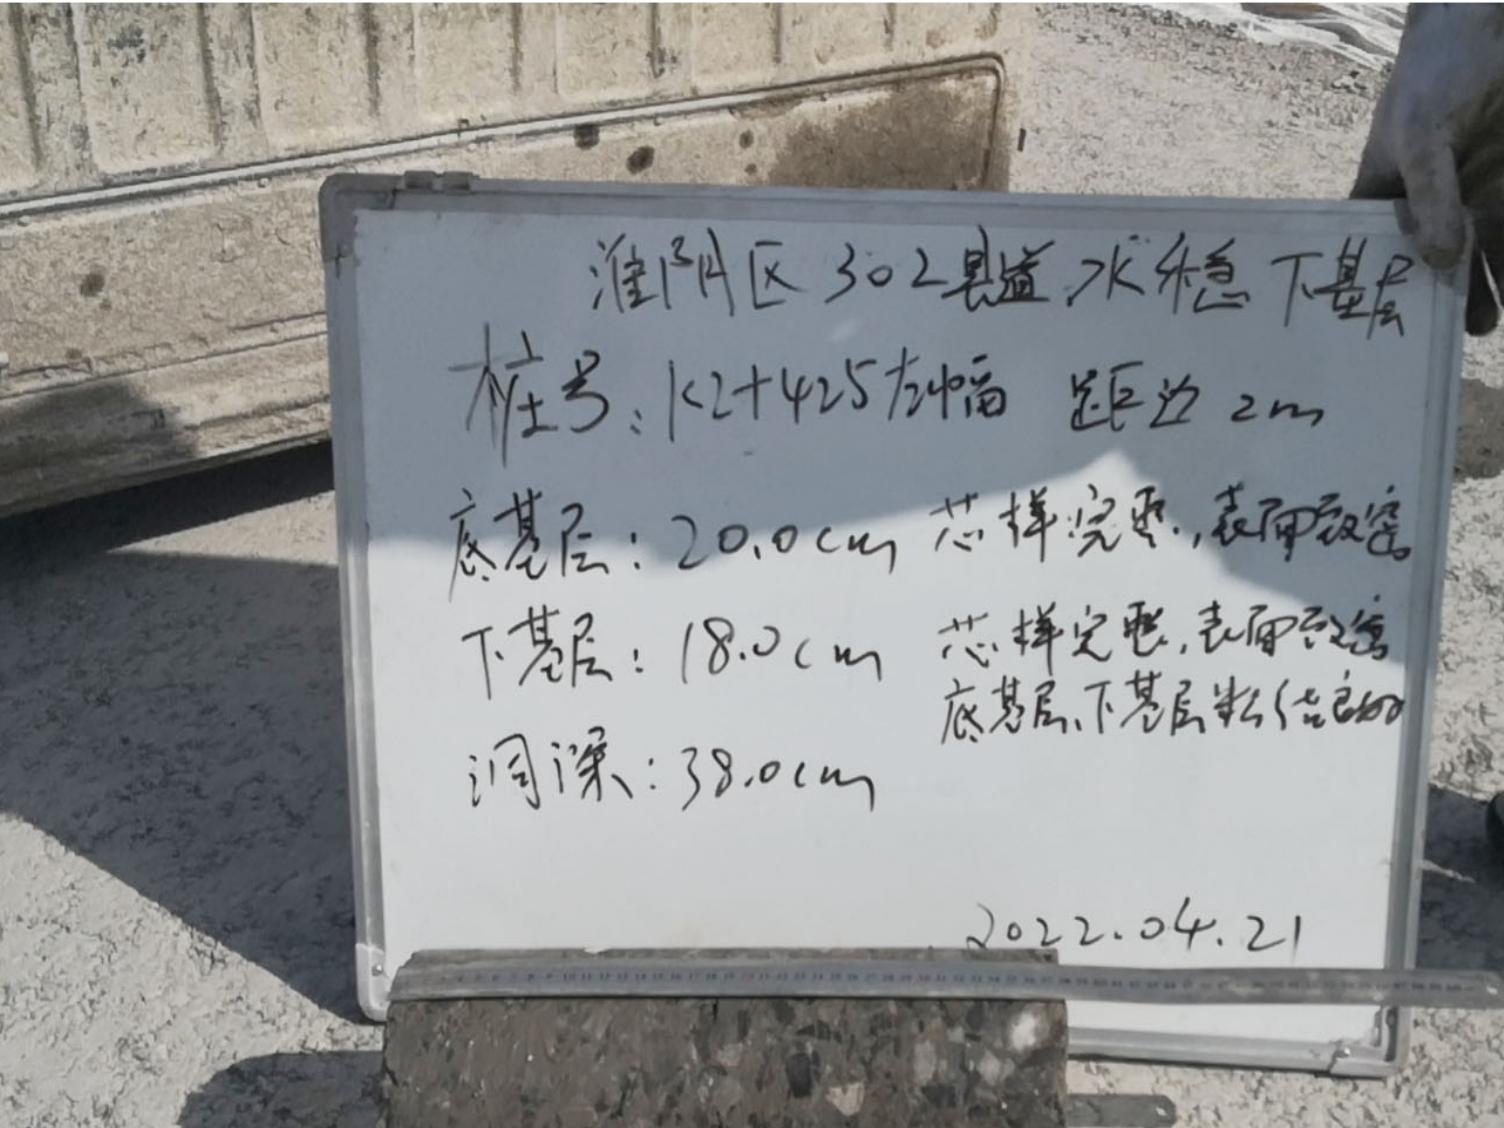 淮阴区302县道水稳下基层
桩号:K2+425左幅 距边2m
底基层:20.0cm 芯样完整,表面致密。
下基层:18.0cm 芯样完整,表面致密
底基层、下基层粘结良好
洞深:38.0cm
2022.04.21